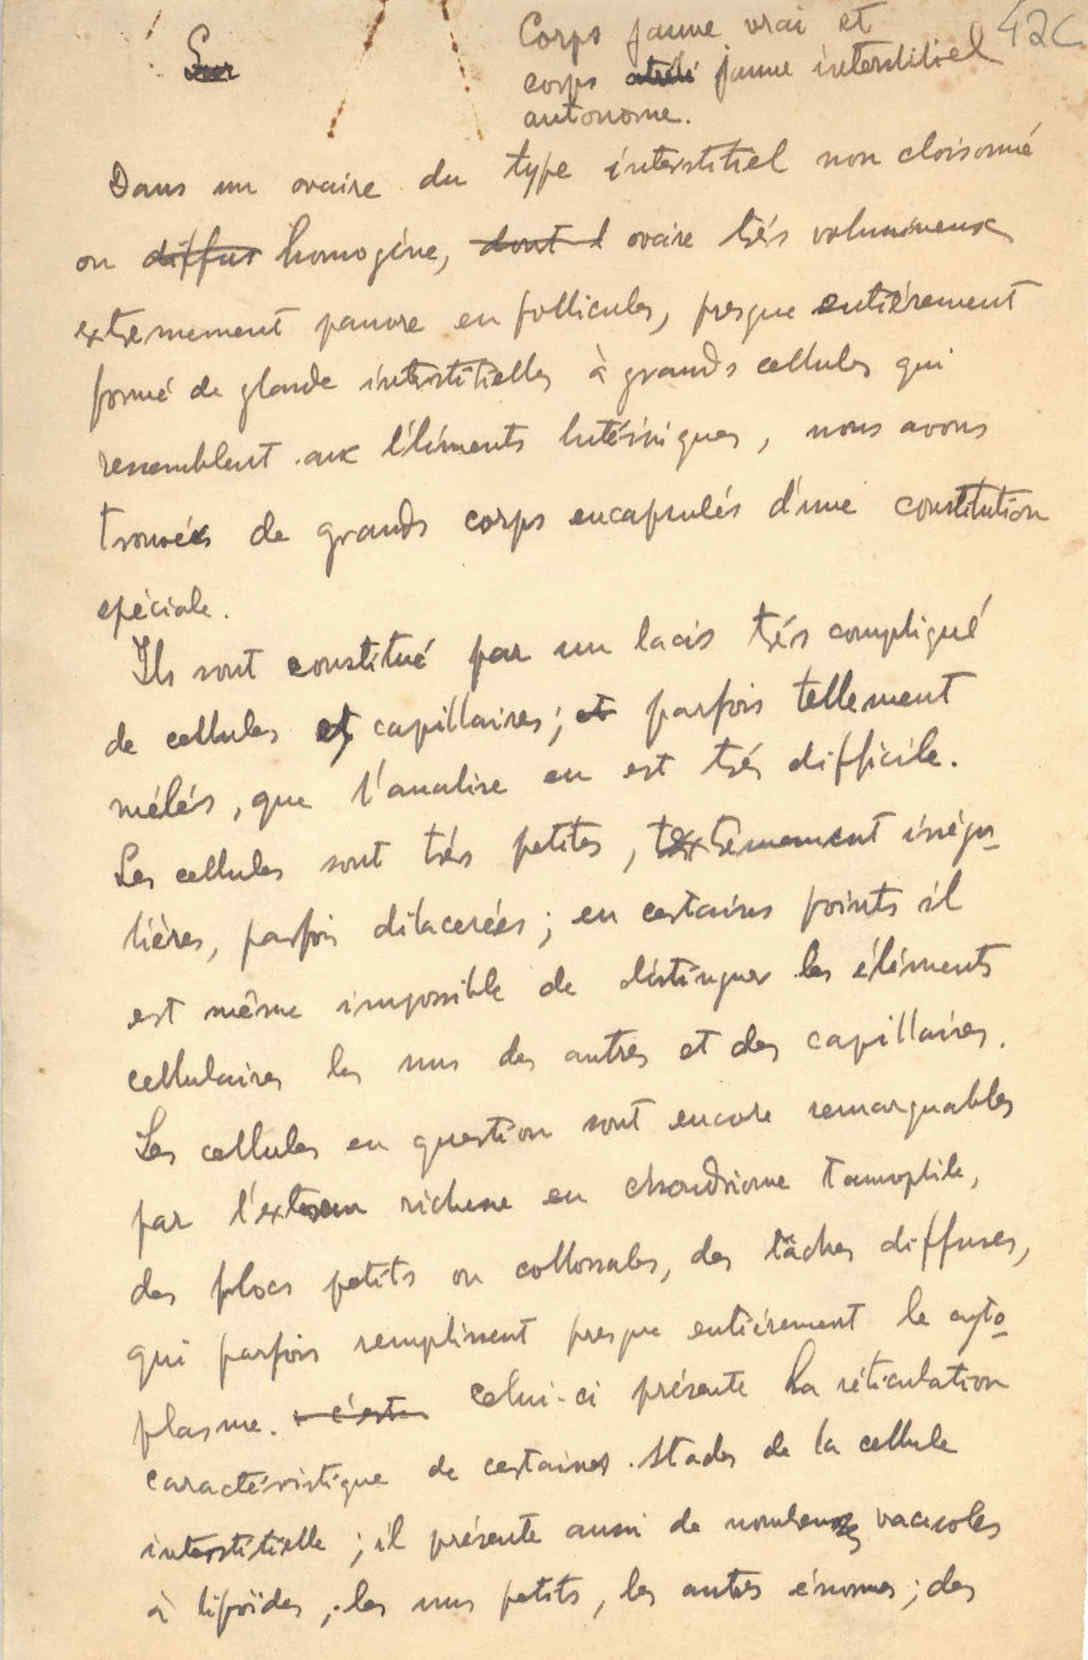 42C
Corps jaune vrai et
corps jaune interstitiel
autonome.
Dans un ovaire du type interstitiel non cloisonné
ou diffus homogène, dont l ovaire très volumineux
extremement pauvre en follicules, presque entièrement
formé de glande interstitielles à grands cellules qui
ressemblent aux l'éléments lutéiniques, nous avons
trouvés de grands corps encapsulés d'une constitution
spéciale.
Ils sont constitué par un lacis très compliqué
de cellules et capillaires; et parfois tellement
mélés, que l'analise en est très difficile.
Les cellules sont très petites, extremement irrégu
lières, parfois dilacerées; en certaines points il
est même impossible de distinguer les éléments
cellulaires les uns des autres et des capillaires.
Les cellules en question sont encore remarquables
par l' richesse en chondriome tannophile,
des flocs petits ou collossales, des tâches diffuses,
qui parfois remplissent presque entièrement le cyto
plasme. c'est Celui-ci présente la réticulation
caractéristique de certaines stades de la cellule
interstitielle; il présente aussi de nombreuses vacuoles
à lipoïdes, les uns petits, les autres énormes; des